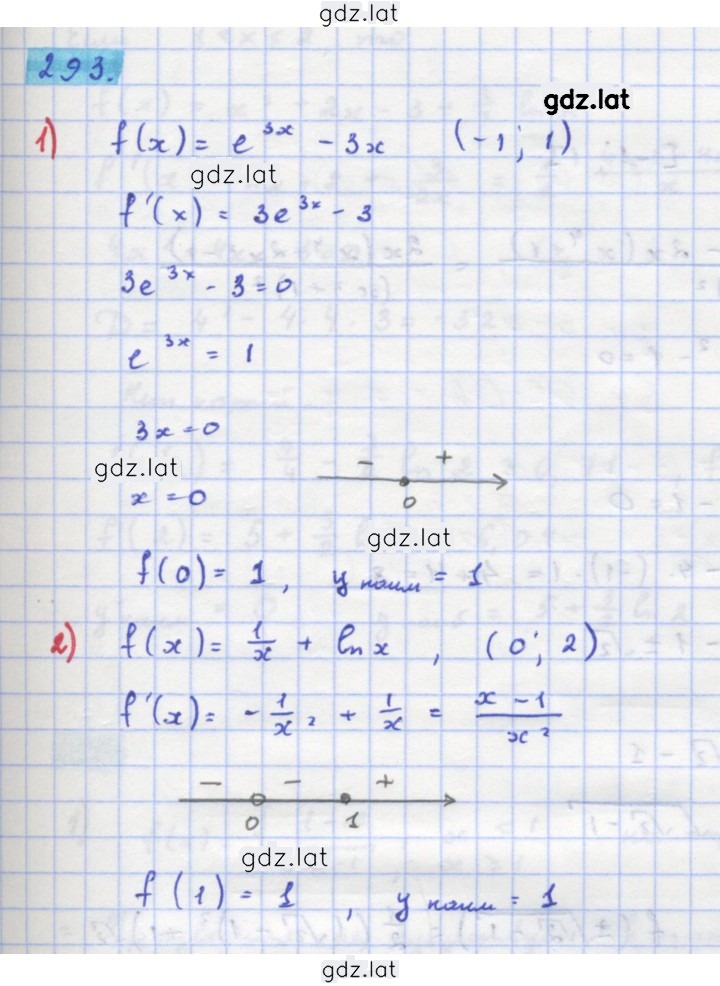 gdz.lat
293.
gdz.lat
1) f(x) = e^{3x} - 3x (-1; 1)
gdz.lat
f'(x) = 3e^{3x} - 3
3e^{3x} - 3 = 0
e^{3x} = 1
3x = 0
gdz.lat
- +
x = 0
0
gdz.lat
f(0) = 1, y наим = 1
2) f(x) = 1/x + ln x, (0; 2)
f'(x) = - 1/x² + 1/x = (x - 1)/x²
- - +
0 1
gdz.lat
f(1) = 1, y наим = 1
gdz.lat